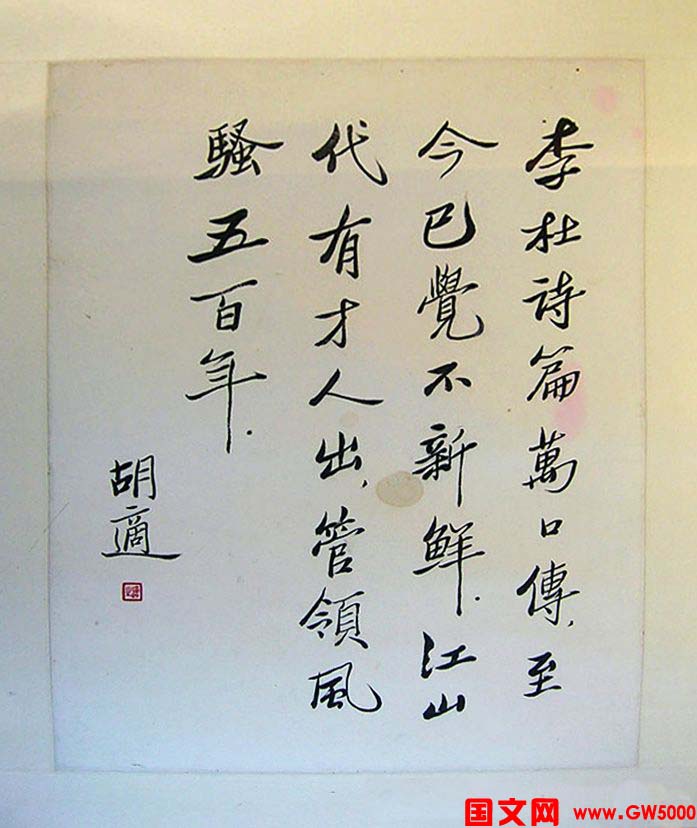 李杜诗篇萬口傳，至
今已覺不新鮮．江山
代有才人出，管領風
騷五百年．
胡適
国文网 www.GW5000